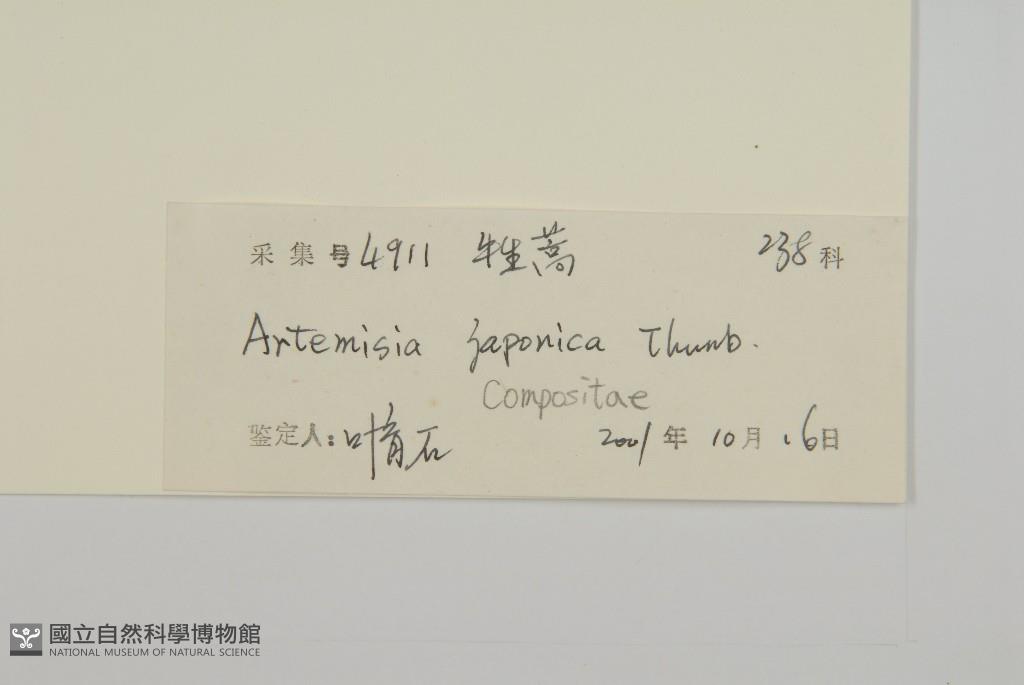 采集号 4911 牡蒿 238科
Artemisia japonica Thunb.
Compositae
鉴定人：叶育石 2001年10月16日
國立自然科學博物館
NATIONAL MUSEUM OF NATURAL SCIENCE